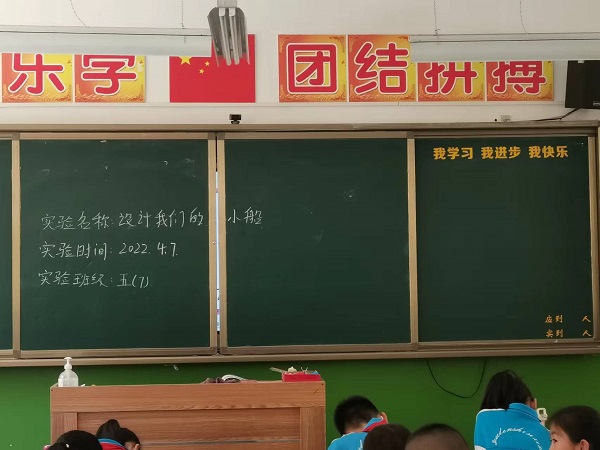 乐学 团结拼搏
我学习 我进步 我快乐
实验名称:设计我们的小船
实验时间:2022.4.7.
实验班级:五(7)
应到 人
实到 人